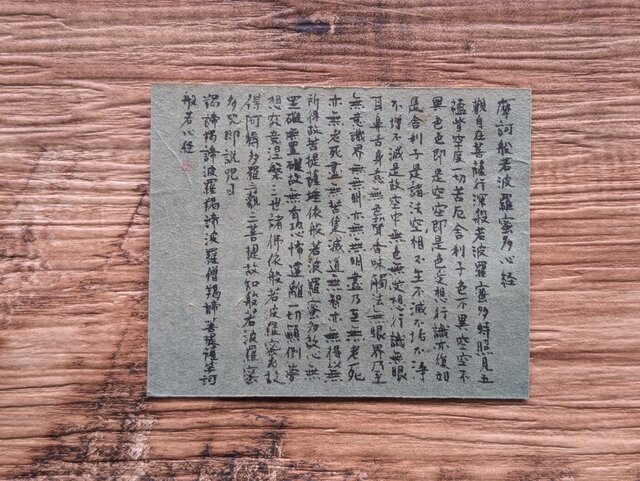 摩訶般若波羅蜜多心經
觀自在菩薩行深般若波羅蜜多時照見五
蘊皆空度一切苦厄舍利子色不異空空不
異色色即是空空即是色受想行識亦復如
是舍利子是諸法空相不生不滅不垢不淨
不增不減是故空中無色無受想行識無眼
耳鼻舌身意無色聲香味觸法無眼界乃至
無意識界無無明亦無無明盡乃至無老死
亦無老死盡無苦集滅道無智亦無得以無
所得故菩提薩埵依般若波羅蜜多故心無
罣礙無罣礙故無有恐怖遠離一切顛倒夢
想究竟涅槃三世諸佛依般若波羅蜜多故
得阿耨多羅三藐三菩提故知般若波羅蜜
多咒即說咒曰
揭諦揭諦波羅揭諦波羅僧揭諦菩提薩婆訶
般若心經